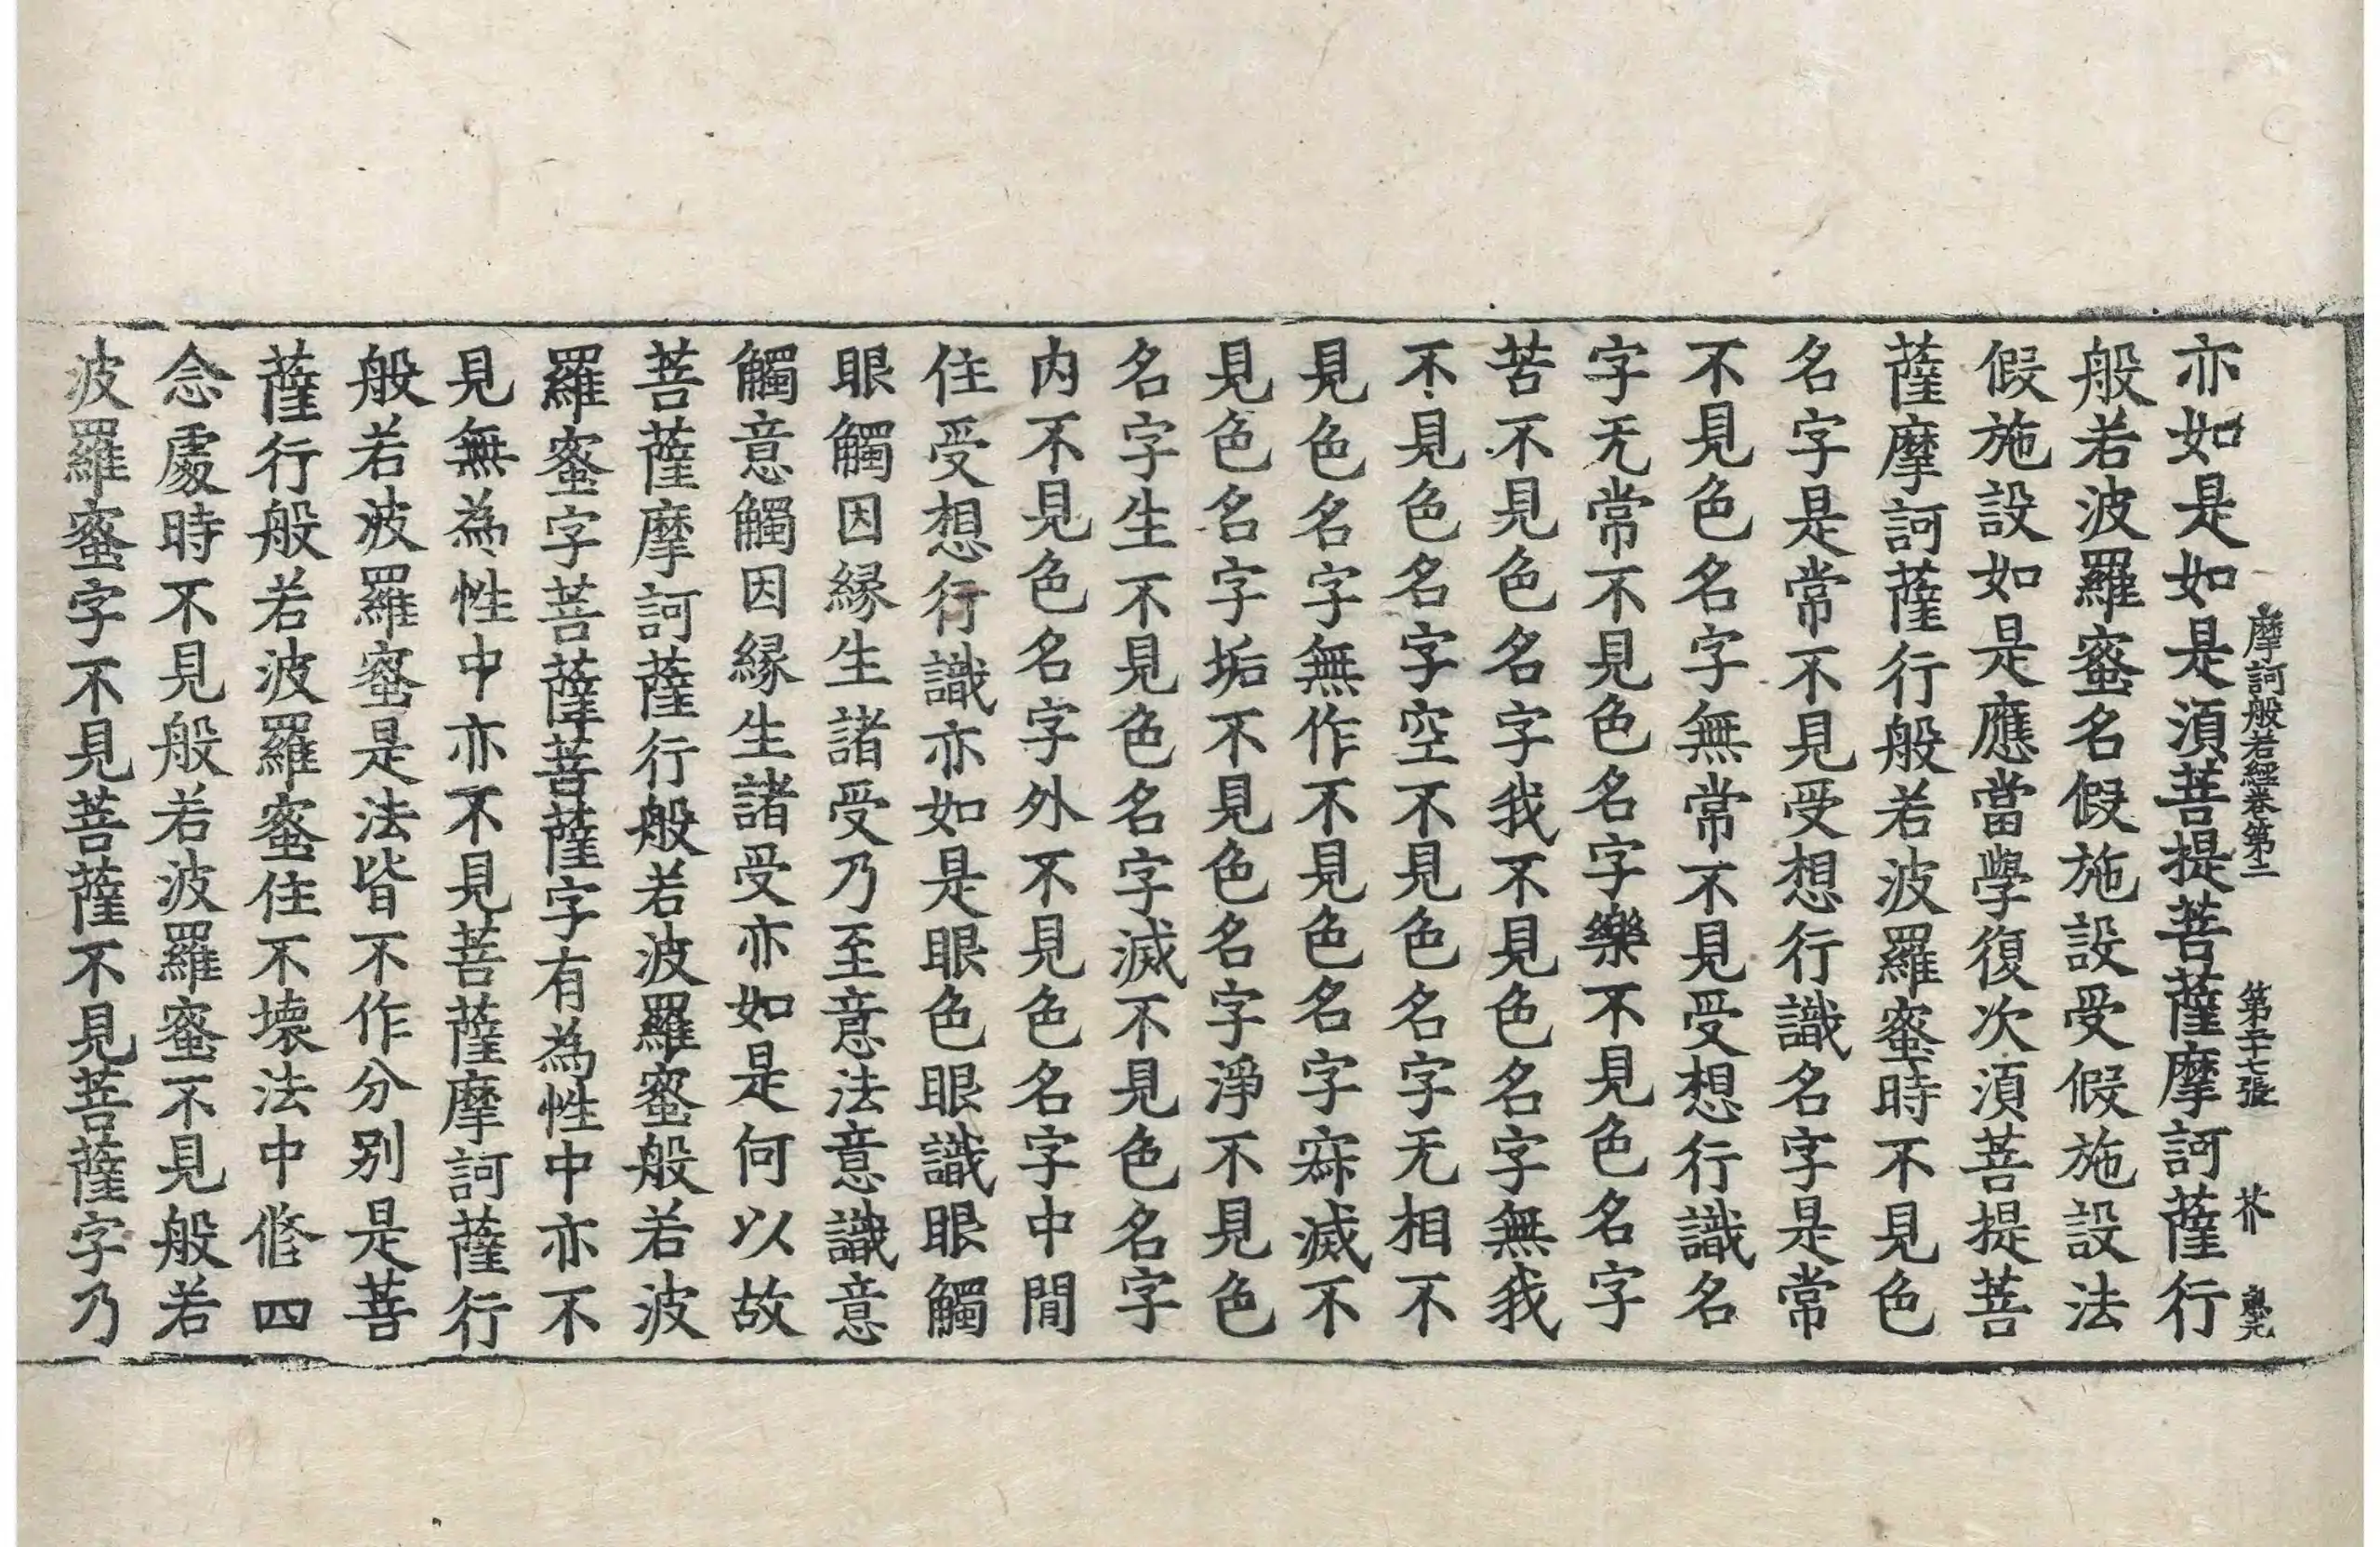 摩訶般若經卷第二 第二十七張 芥
亦如是如是須菩提菩薩摩訶薩行
般若波羅蜜名假施設受假施設法
假施設如是應當學復次須菩提菩
薩摩訶薩行般若波羅蜜時不見色
名字是常不見受想行識名字是常
不見色名字無常不見受想行識名
字无常不見色名字樂不見色名字
苦不見色名字我不見色名字無我
不見色名字空不見色名字无相不
見色名字無作不見色名字寂滅不
見色名字垢不見色名字淨不見色
名字生不見色名字滅不見色名字
内不見色名字外不見色名字中間
住受想行識亦如是眼色眼識眼觸
眼觸因縁生諸受乃至意法意識意
觸意觸因縁生諸受亦如是何以故
菩薩摩訶薩行般若波羅蜜般若波
羅蜜字菩薩菩薩字有為性中亦不
見無為性中亦不見菩薩摩訶薩行
般若波羅蜜是法皆不作分別是菩
薩行般若波羅蜜住不壞法中修四
念處時不見般若波羅蜜不見般若
波羅蜜字不見菩薩不見菩薩字乃